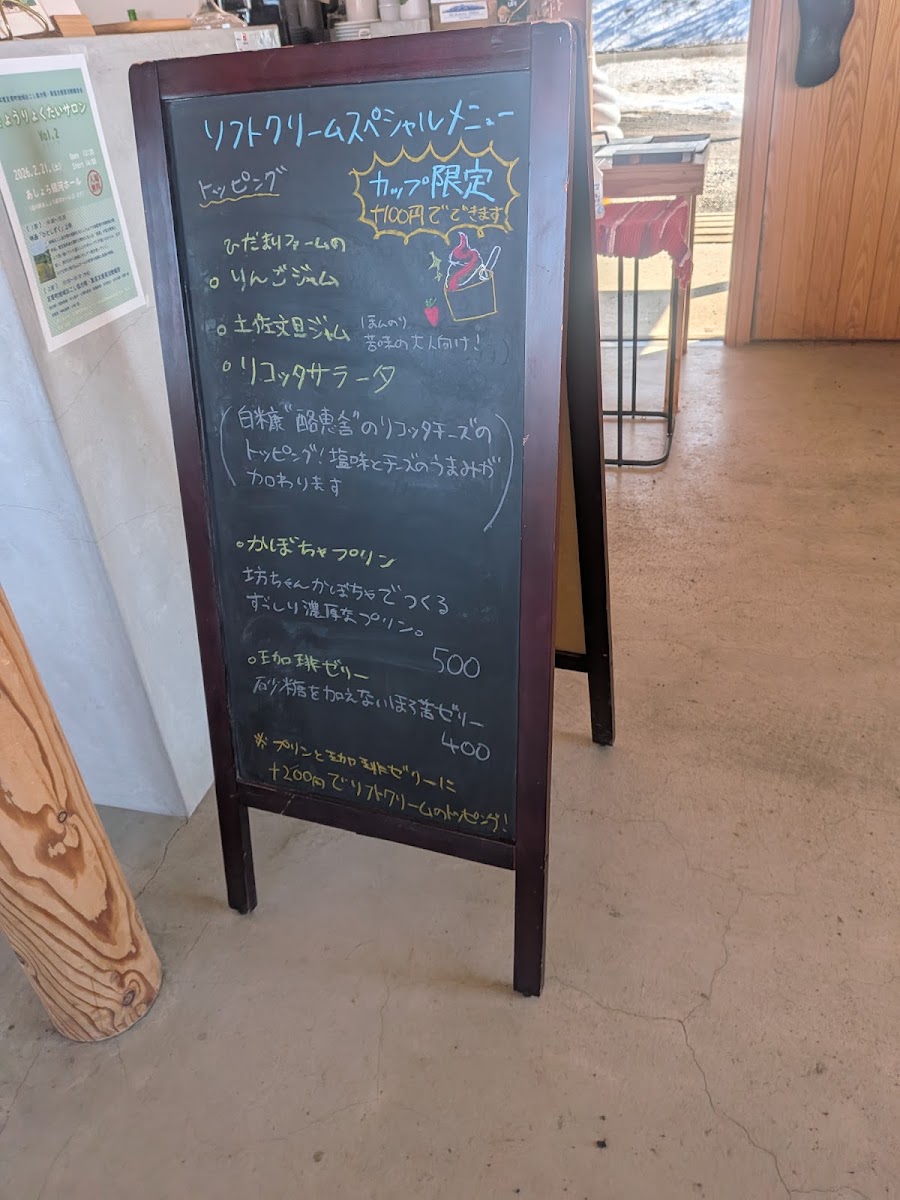 ょうりょくたいサロン
Vol.2
2026.2.21.(土)
あしょろ銀河ホール
ソフトクリームスペシャルメニュー
トッピング
カップ限定
+100円でできます
ひだまりファームの
○りんごジャム
○土佐文旦ジャム
ほんのり
苦味の大人向け!
○リコッタサラータ
(白糠"酪恵舎"のリコッタチーズの
トッピング!塩味とチーズのうまみが
加わります)
○かぼちゃプリン
坊ちゃんかぼちゃでつくる
ずっしり濃厚なプリン。
500
○珈琲ゼリー
砂糖を加えないほろ苦ゼリー
400
※プリンと珈琲ゼリーに
+200円でソフトクリームのトッピング!